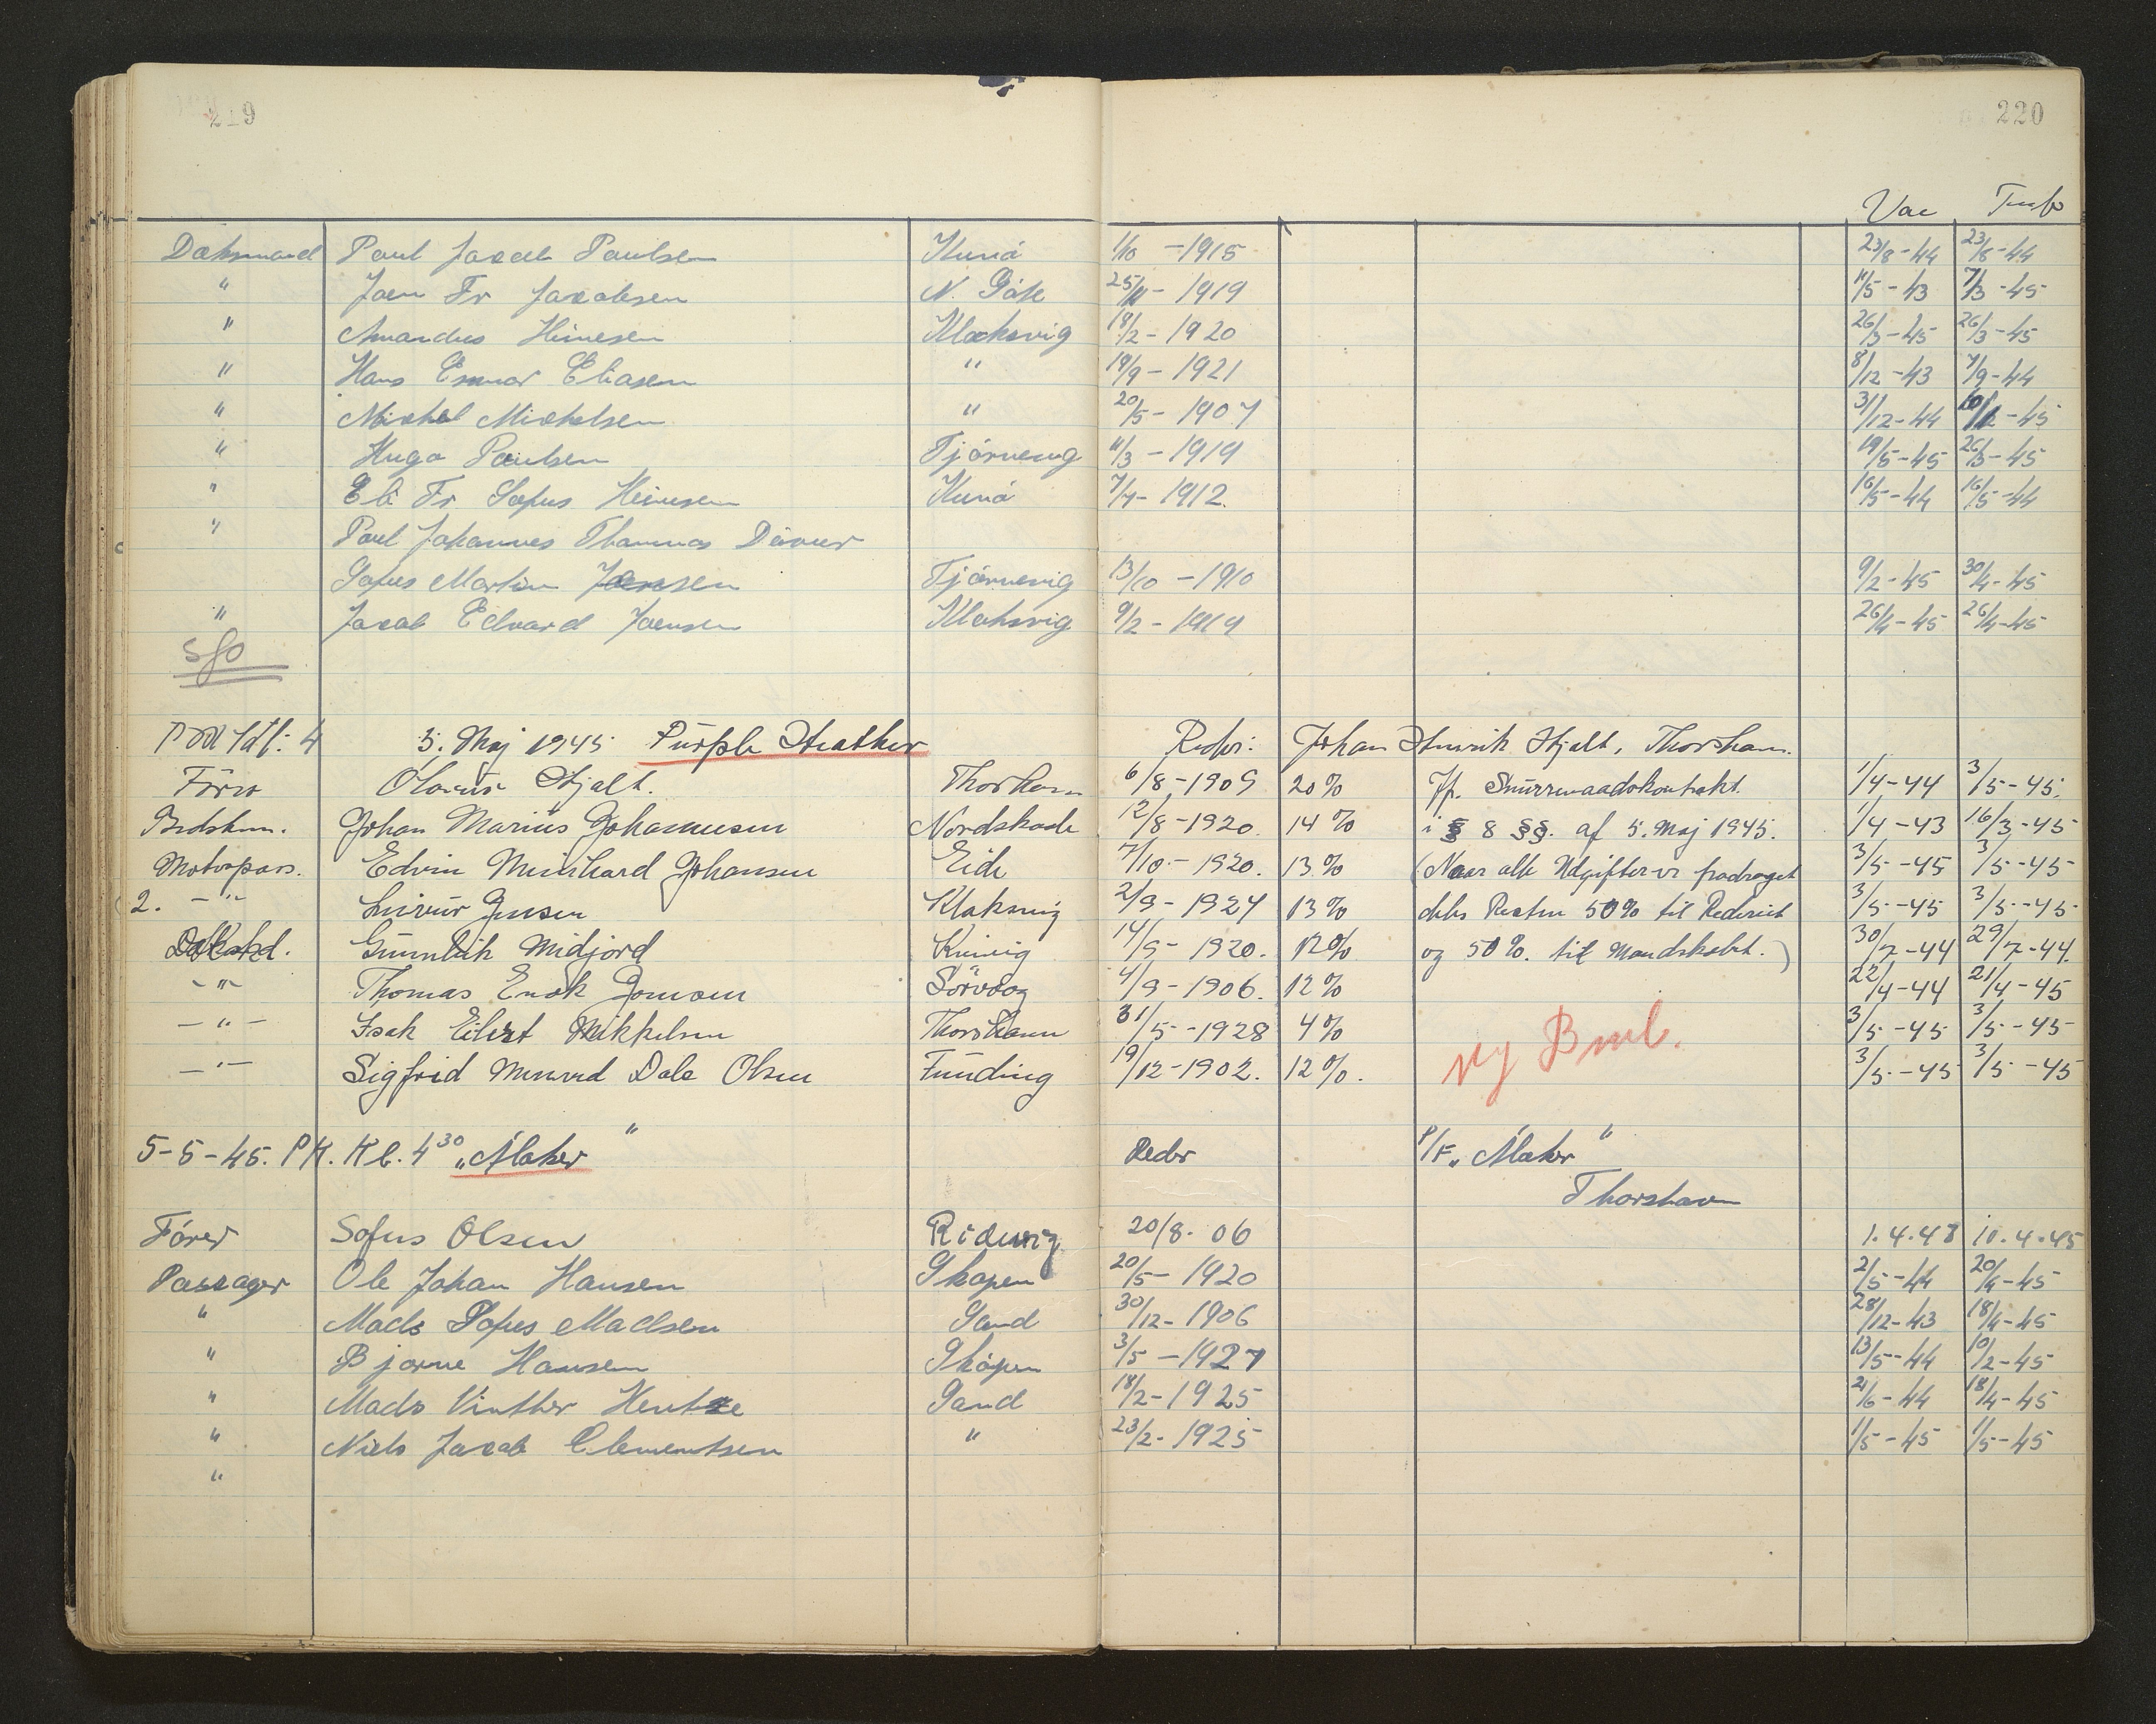 219
220
Vac Tusb
Dæksmand Paul Jacob Poulsen Kunå 1/10 - 1915 23/8-44 23/8-44
" Joen Fr Jacobsen N. Göte 25/11 - 1919 11/5-43 7/3-45
" Amandus Heinesen Klaksvig 19/2 - 1920 26/3-45 26/3-45
" Hans Eliasen " 19/9 - 1921 8/12-43 7/9-44
" Michal Mickelsen " 20/5 - 1907 3/12-44 -45
" Hugo Poulsen Tjörnevig 11/3 - 1919 19/5-45 26/3-45
" Eli Fr Sofus Heinesen Kunå 7/7 - 1912. 16/5-44 16/5-44
" Poul Johannes Thommas
Sofus Martin Joensen Tjörnevig 13/10 - 1910 9/2-45 30/4-45
" Jacob Edvard Joensen Klaksvig 9/2 - 1919 26/4-45 26/4-45
Kl. 4 5. Maj 1945 Purple Heather Reder: Johan Henrik Hjalt, Thorshavn.
Fører Olavur Hjalt. Thorshavn 6/8-1909 20% Jfr. Snurrevaadskontrakt. 1/4-44 3/5-45.
Bedstem. Johan Marius Johannesen Nordskaale 12/8-1920. 14% i § 8 §§. af 5. Maj 1945. 1/4-43 16/3-45
Motorpass. Edvin Meinhard Johansen Eide 7/10.-1920. 13% (Naar alle Udgifter er fradraget 3/5-45 3/5-45
2. -"- Leivur Jensen Klaksvig 2/9-1924 13% deles Resten 50% til Rederiet 3/5-45 3/5-45
Dæksmd. Gunnleik Midjord Kvivig 14/9-1920. 12% og 50%. til Mandskabet.) 30/7-44 29/7-44.
-"- Thomas Enok Joensen Sörvaag 4/9-1906. 12% 22/4-44 21/4-45
-"- Isak Eilert Mikkelsen Thorshavn 31/5-1928 4% 3/5-45 3/5-45
-"- Sigfrid Dale Olsen Funding 19/12-1902. 12%. ny Bml. 3/5-45 3/5-45
5-5-45. PK. Kl. 4 30 „Alaker" Reder P/F „Alaker"
Thorshavn
Fører Sofus Olsen Ridevig 20/8. 06 1.4.43 10.4.45
Passager Ole Johan Hansen Skopen 20/5 - 1920 2/5-44 20/4-45
" Mads Sofus Madsen Sand 30/12 - 1906 28/12-43 18/4-45
" Bjarne Hansen Skópen 3/5 - 1927 13/5-44 10/2-45
" Mads Vinther Hentze Sand 18/2 - 1925 2/6-44 18/4-45
" Niels Jacob Clementsen " 23/2 - 1925 1/5-45 1/5-45
"